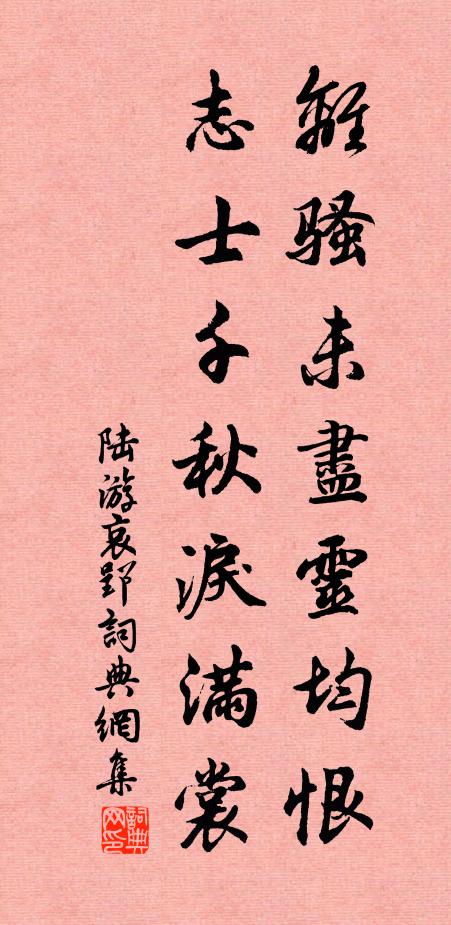 離騷未盡靈均恨
志士千秋淚滿裳
陆游哀郢詞典網集
詞典网印